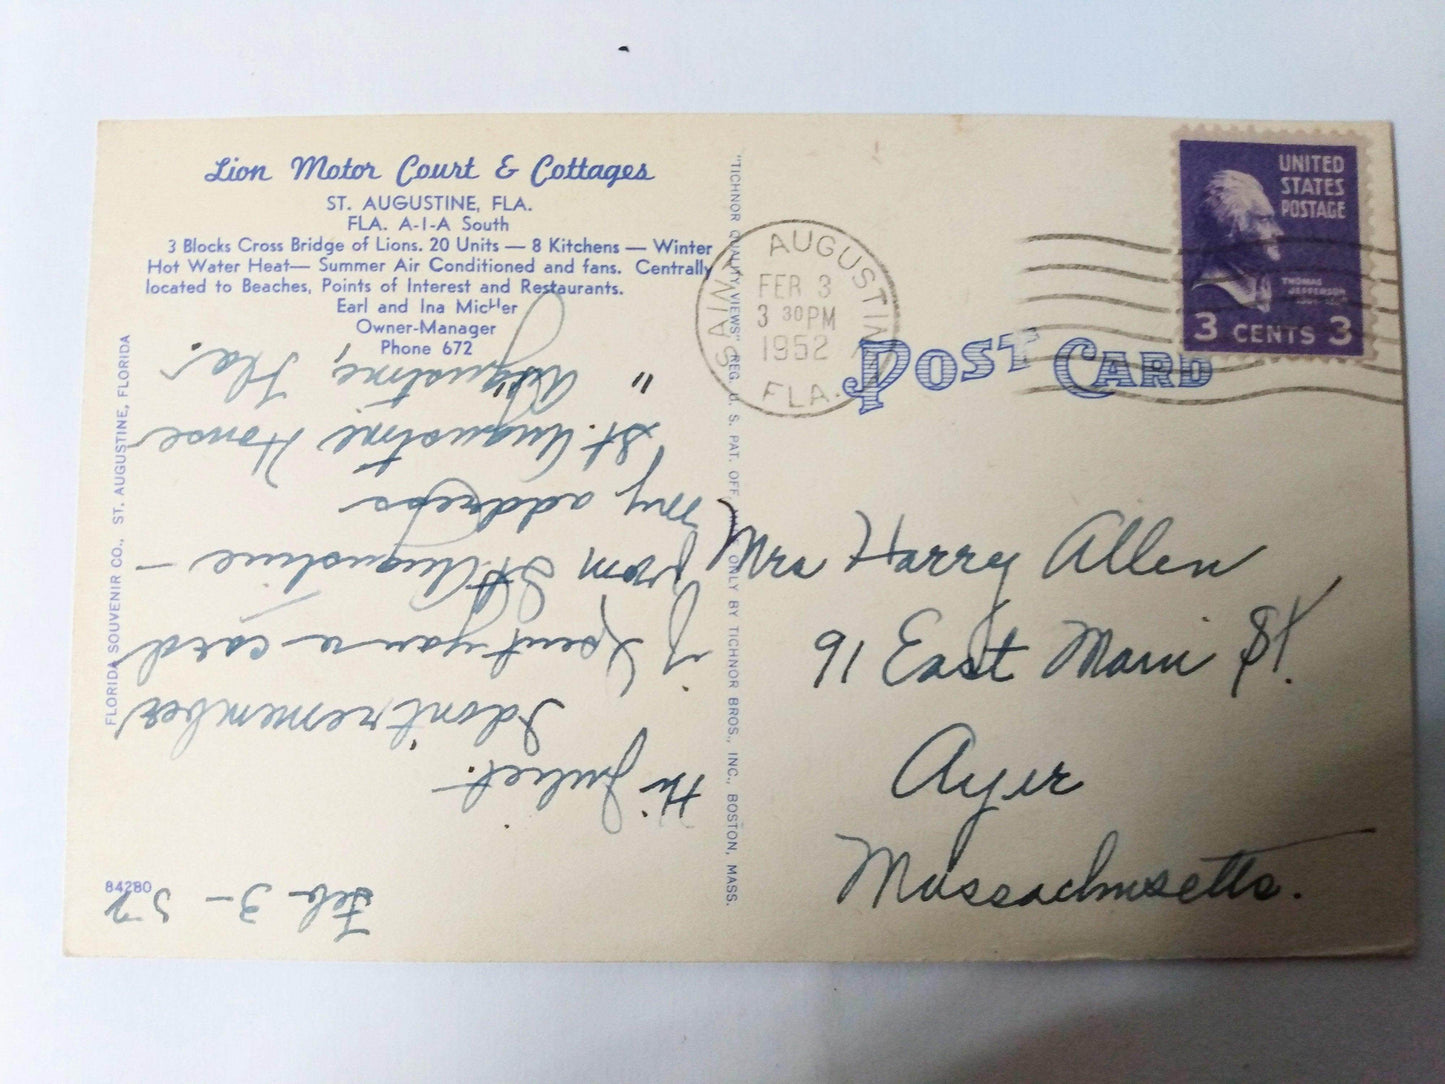 Lion Motor Court & Cottages
ST. AUGUSTINE, FLA.
FLA. A-1-A South
3 Blocks Cross Bridge of Lions. 20 Units — 8 Kitchens — Winter
Hot Water Heat— Summer Air Conditioned and fans. Centrally
located to Beaches, Points of Interest and Restaurants.
Earl and Ina Micher
Owner-Manager
Phone 672
FLORIDA SOUVENIR CO., ST. AUGUSTINE, FLORIDA
84280
"TICHNOR QUALITY VIEWS" REG. U. S. PAT. OFF. ONLY BY TICHNOR BROS., INC., BOSTON, MASS.
SAINT AUGUSTINE
FEB 3
3 30 PM
1952
FLA.
POST CARD
UNITED
STATES
POSTAGE
THOMAS
JEFFERSON
3 CENTS 3
Mrs Harry Allen
91 East Main St.
Ayer
Massachusetts.
Feb 3 - 52
Hi Juliet.
I don't remember
if I sent you a card
from St Augustine -
my address
"St. Augustine House"
Augustine, Fla.